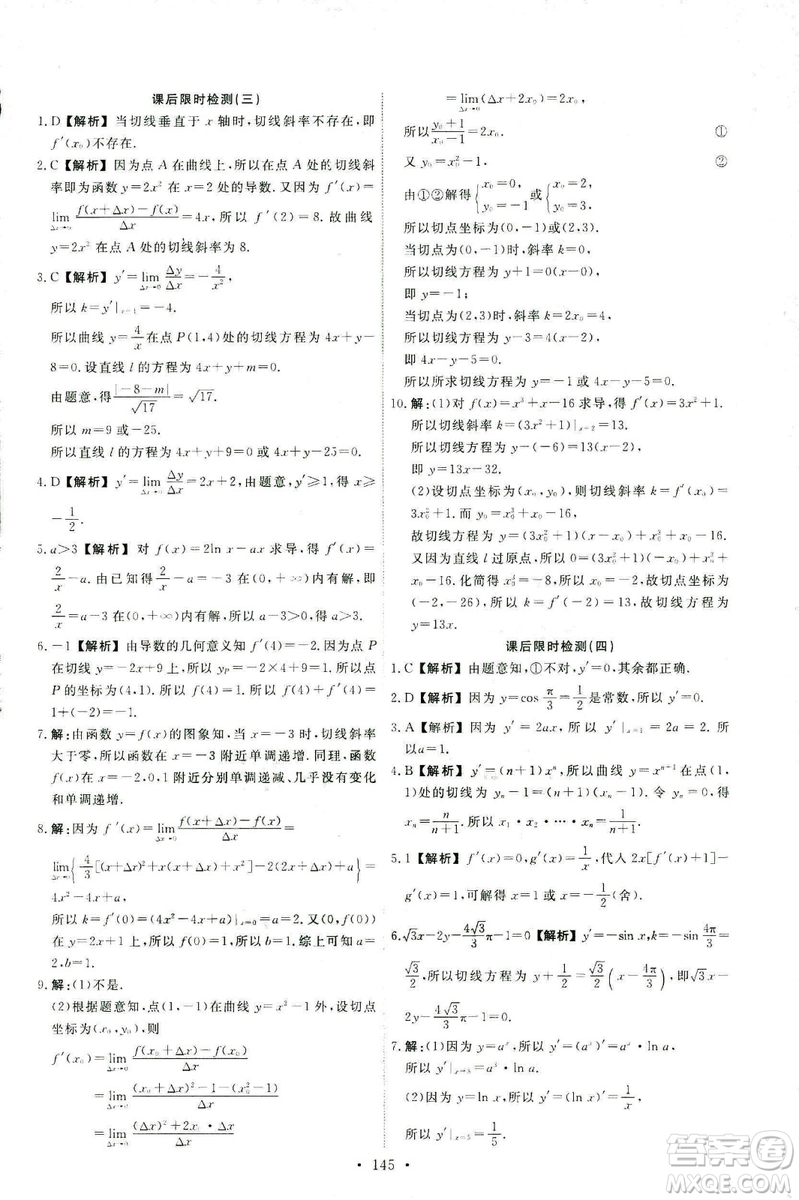 课后限时检测(三)
1. D【解析】当切线垂直于 x 轴时,切线斜率不存在,即
f′(x₀)不存在.
2. C【解析】因为点 A 在曲线上,所以在点 A 处的切线斜
率即为函数 y=2x² 在 x=2 处的导数. 又因为 f′(x)=
lim_{Δx→0} [f(x+Δx)-f(x)]/Δx=4x,所以 f′(2)=8. 故曲线
y=2x² 在点 A 处的切线斜率为 8.
3. C【解析】y′=lim_{Δx→0} Δy/Δx=-4/x²,
所以 k=y′|ₓ₌₁=-4.
所以曲线 y=4/x 在点 P(1,4)处的切线方程为 4x+y-
8=0. 设直线 l 的方程为 4x+y+m=0.
由题意,得 |-8-m|/√17=√17.
所以 m=9 或-25.
所以直线 l 的方程为 4x+y+9=0 或 4x+y-25=0.
4. D【解析】y′=lim_{Δx→0} Δy/Δx=2x+2,由题意,y′≥1,得 x≥
-1/2.
5. a>3【解析】对 f(x)=2ln x-ax 求导,得 f′(x)=
2/x-a. 由已知得 2/x-a=-3 在(0,+∞)内有解,即
2/x=a-3 在(0,+∞)内有解,所以 a-3>0,所以 a>3.
6. -1【解析】由导数的几何意义知 f′(4)=-2. 因为点 P
在切线 y=-2x+9 上,所以 y_P=-2×4+9=1. 所以点
P 的坐标为(4,1). 所以 f(4)=1. 所以 f(4)+f′(4)=
1+(-2)=-1.
7. 解:由函数 y=f(x)的图象知,当 x=-3 时,切线斜率
大于零,所以函数在 x=-3 附近单调递增. 同理,函数
f(x)在 x=-2,0,1 附近分别单调递减、几乎没有变化
和单调递增.
8. 解:因为 f′(x)=lim_{Δx→0} [f(x+Δx)-f(x)]/Δx=
lim_{Δx→0}{4/3[(x+Δx)²+x(x+Δx)+x²]-4(2x+Δx)+a}=
4x²-8x+a,
所以 k=f′(0)=(4x²-4x+a)|ₓ₌₀=2. 又 f(0)=
b,所以切线方程为 y-b=ax,所以 b=1. 综上可知 a=
2,b=1.
9. 解:(1)不是.
(2)根据题意知,点不在曲线 y=x²-1 上,所以设切点
坐标为(x₀,y₀),则
f′(x₀)=lim_{Δx→0} [f(x₀+Δx)-f(x₀)]/Δx
=lim_{Δx→0} [(x₀+Δx)²-1-(x₀²-1)]/Δx
=lim_{Δx→0} [(Δx)²+2x₀·Δx]/Δx
=lim_{Δx→0}(Δx+2x₀)=2x₀.
所以 (y₀+1)/(x₀-1)=2x₀. ①
又 y₀=x₀²-1, ②
由①②解得{x₀=0, y₀=-1 或{x₀=2, y₀=3.
所以切点坐标为(0,-1)或(2,3).
当切点为(0,-1)时,斜率 k=0.
所以切线方程为 y+1=0×(x-0),
即 y=-1;
当切点为(2,3)时,斜率 k=4.
所以切线方程为 y-3=4(x-2),
即 4x-y-5=0.
所以所求切线方程为 y=-1 或 4x-y-5=0.
10. 解:(1)对 f(x)=x³+x-16 求导,得 f′(x)=3x²+1.
所以切线斜率 k=(3x²+1)|ₓ₌₂=13.
所以切线方程为 y-(-6)=13(x-2),
即 y=13x-32.
(2)设切点坐标为(x₀,y₀),所以切线斜率 k=f′(x₀)=
3x₀²+1. 而 y₀=x₀³+x₀-16,
故切线方程为 y-(x₀³+x₀-16)=(3x₀²+1)(x-x₀).
又因为直线 l 过原点,所以 0=(3x₀²+1)(0-x₀)+x₀³+
x₀-16. 化简得 x₀³=-8,x₀=-2,故切点坐标为
(-2,-26),所以切线斜率为 13,故切线方程为
y=13x.
课后限时检测(四)
1. C【解析】由题意知,①不对,②③④,其余都正确.
2. D【解析】因为 y=cos π/3=1/2 是常数,所以 y′=0.
3. A【解析】因为 y′=2ax,所以 y′|ₓ₌₁=2a=2. 所
以 a=1.
4. B【解析】y′=(n+1)xⁿ,所以曲线 y=xⁿ⁺¹ 在点(1,
1)处的切线为 y-1=(n+1)(x-1). 令 y=0,得
xₙ=n/(n+1). 所以 x₁·x₂·…·xₙ=1/(n+1).
5. 1【解析】f′(x)=2x,g′(x)=1/x,代入 2x[f′(x)+1]-
g′(x)=0,可解得 x=1/2 或-1(舍).
6. √3x-2y-4√3/3 π-1=0【解析】y′=-sin x,k=-sin 4π/3
=√3/2,所以切线方程为 y+1/2=√3/2(x-4π/3),即√3x-
2y-4√3/3 π-1=0.
7. 解:(1)因为 y=aˣ,所以 y′=aˣ·ln a,
所以 y′|ₓ₌₃=a³·ln a.
(2)因为 y=ln x,所以 y′=1/x,
所以 y′|ₓ₌₅=1/5.
· 145 ·
答案圈
MXQE.COM